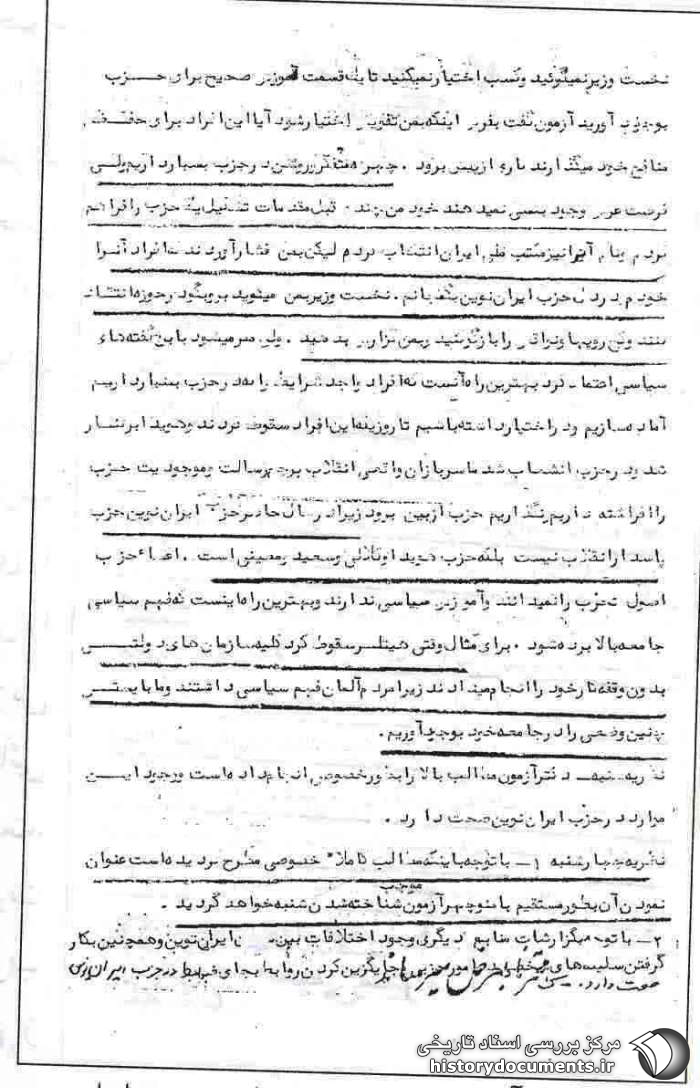 نخست وزیر نمیگوئید وکسب اختیار نمیکنید تا یک قسمت آموزش صحیح برای حزب
بوجود آورید آزمون گفت بفرض اینکه بمن تفویض اختیار شود آیا این افراد برای حفظ
منافع خود میگذارند کاری از پیش برود . چهره متفکر و روشن در حزب بسیار داریم ولی
فرصت عرض وجود بکسی نمیدهند خود من چند قبل مقدمات تشکیل یک حزب را فراهم
کردم و نام آنرا نیز مکتب ملی ایران انتخاب کردم لیکن بمن فشار آوردند که افراد آنرا
خودم بدرون حزب ایران نوین بکشانم . نخست وزیر بمن میگوید برو بگو در حوزه انتقاد
کنند وکج رویها ونواقص را بازگو کنید وبمن گزارش بدهید . ولی مگر میشود باین گفته های
سیاسی اعتماد کرد بهترین راه آنست که افراد واجد شرایط را که در حزب بسیار داریم
آماده سازیم ودر اختیار داشته باشیم تا روزیکه این افراد سقوط کردند وهویدا برکنار
شد ودر حزب انشعاب شد ما سربازان واقعی انقلاب پرچم رسالت وموجودیت حزب
را افراشته داریم نگذاریم حزب از بین برود زیرا در حال حاضر حزب ایران نوین حزب
پاسدار انقلاب نیست بلکه حزب هویدا و کلالی وسعید ومعینی است . اعضاء حزب
اصول تحزب را نمیدانند وآموزش سیاسی ندارند وبهترین راه اینست که فهم سیاسی
جامعه بالا برده شود . برای مثال وقتی هیتلر سقوط کرد کلیه سازمان های دولتی
بدون وقفه کار خود را انجام میدادند زیرا مردم آلمان فهم سیاسی داشتند وما بایستی
چنین وضعی را در جامعه خود بوجود آوریم .
نظریه شنبه ـ دکتر آزمون مطالب بالا را بطور خصوصی انجام داده است ووجود این
موارد در حزب ایران نوین صحت دارد .
نظریه چهارشنبه ۱ـ با توجه باینکه مطالب کاملا" خصوصی مطرح گردیده است عنوان
نمودن آن بطور مستقیم با منوچهر آزمون موجب شناخته شدن شنبه خواهد گردید .
۲ـ با توجه بگزارشات منابع دیگری وجود اختلافات بین ایران نوین وهمچنین بکار
گرفتن سلیقه های جایگزین کردن روابط بجای ضوابط در حزب ایران نوین
صحت دارد .
مرکز بررسی اسناد تاریخی
historydocuments.ir